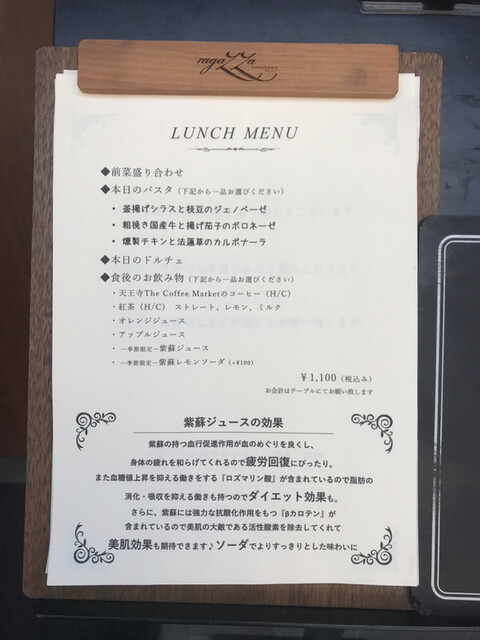 ragazza
LUNCH MENU
◆前菜盛り合わせ
◆本日のパスタ（下記から一品お選びください）
・釜揚げシラスと枝豆のジェノベーゼ
・粗挽き国産牛と揚げ茄子のボロネーゼ
・燻製チキンと法蓮草のカルボナーラ
◆本日のドルチェ
◆食後のお飲み物（下記から一品お選びください）
・天王寺The Coffee Marketのコーヒー（H/C）
・紅茶（H/C） ストレート、レモン、ミルク
・オレンジジュース
・アップルジュース
・ー季節限定ー紫蘇ジュース
・ー季節限定ー紫蘇レモンソーダ（+¥100）
¥1,100（税込み）
お会計はテーブルにてお願い致します
紫蘇ジュースの効果
紫蘇の持つ血行促進作用が血のめぐりを良くし、
身体の疲れを和らげてくれるので疲労回復にぴったり。
また血糖値上昇を抑える働きをする『ロズマリン酸』が含まれているので脂肪の
消化・吸収を抑える働きも持つのでダイエット効果も。
さらに、紫蘇には強力な抗酸化作用をもつ『βカロテン』が
含まれているので美肌の大敵である活性酸素を除去してくれて
美肌効果も期待できます♪ソーダでよりすっきりとした味わいに